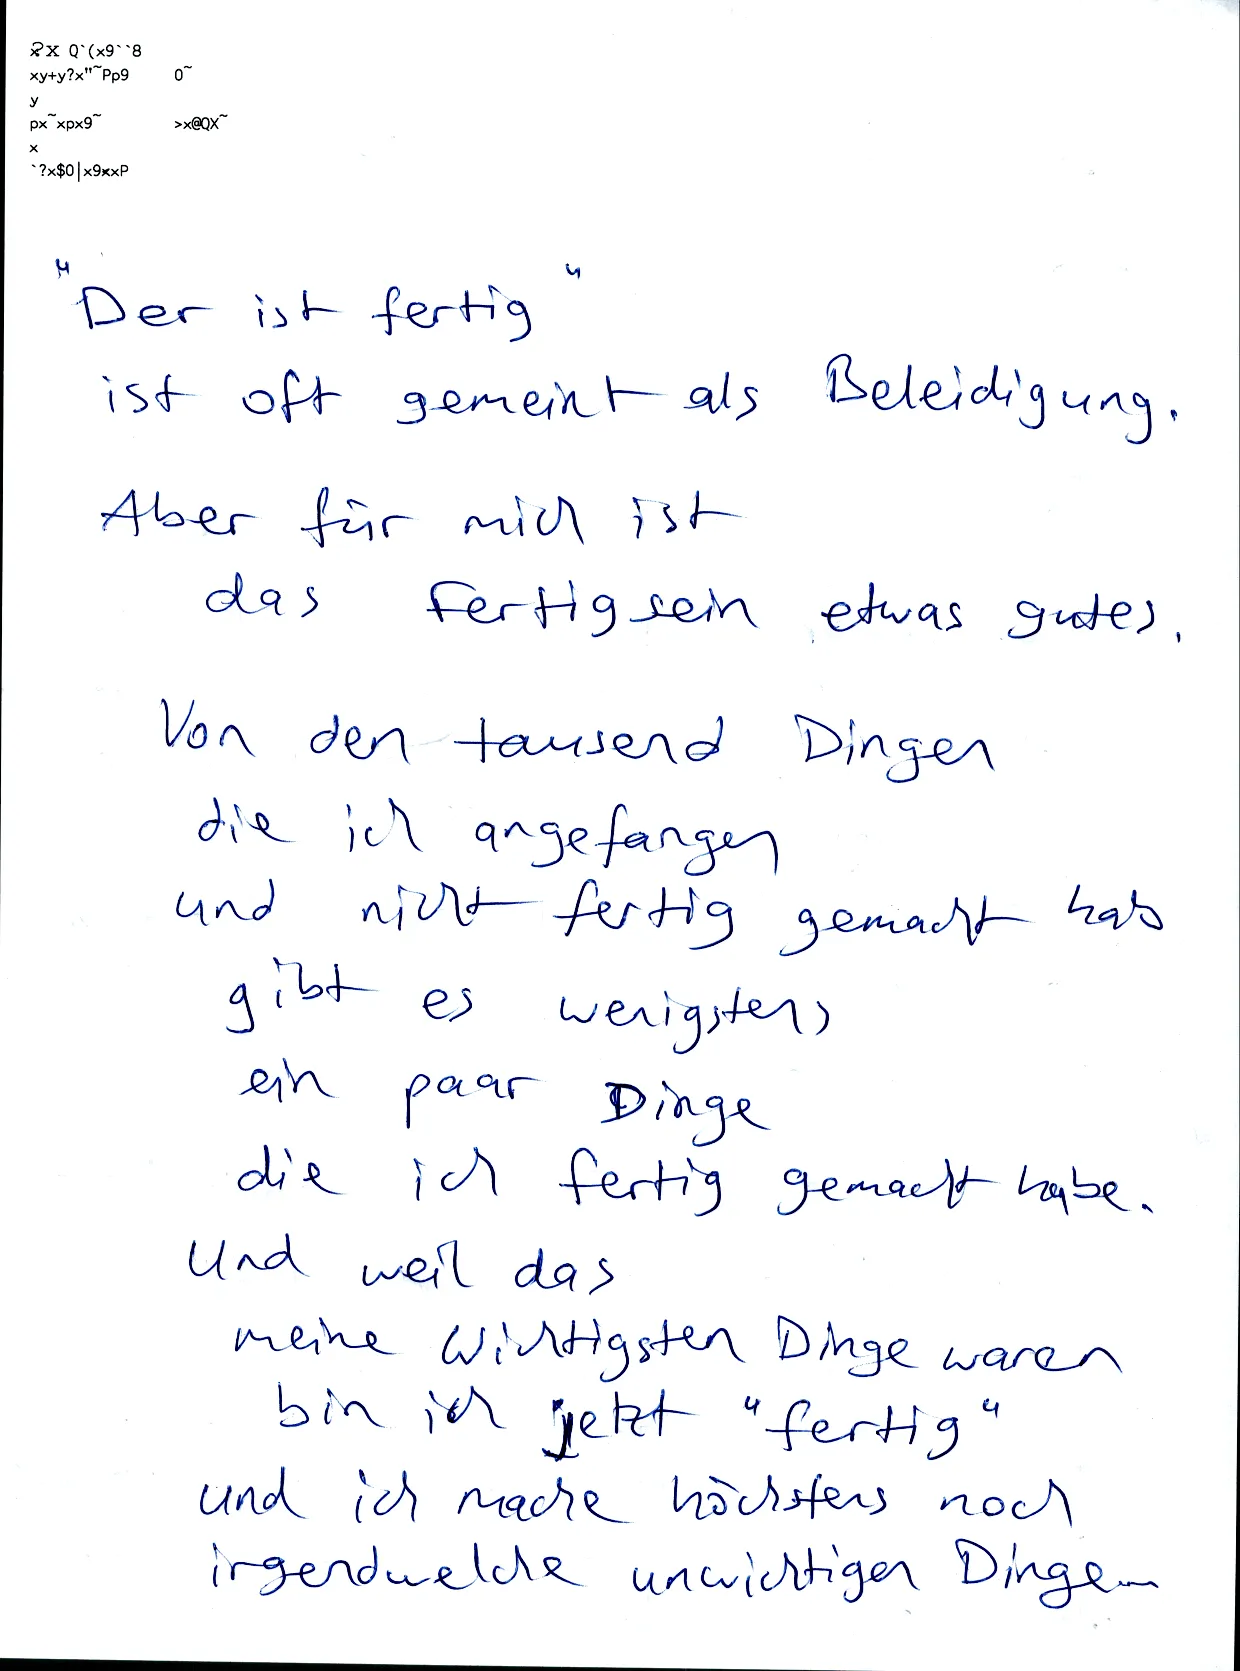 ?X Q`(x9``8
xy+y?x"~Pp9 0~
y
px~xpx9~ >x@QX~
x
`?x$0|x9xxP
"Der ist fertig"
ist oft gemeint als Beleidigung.
Aber für mich ist
das Fertigsein etwas gutes.
Von den tausend Dingen
die ich angefangen
und nicht fertig gemacht hab
gibt es wenigstens
ein paar Dinge
die ich fertig gemacht habe.
Und weil das
meine Wichtigsten Dinge waren
bin ich jetzt "fertig"
und ich mache höchstens noch
irgendwelche unwichtigen Dinge